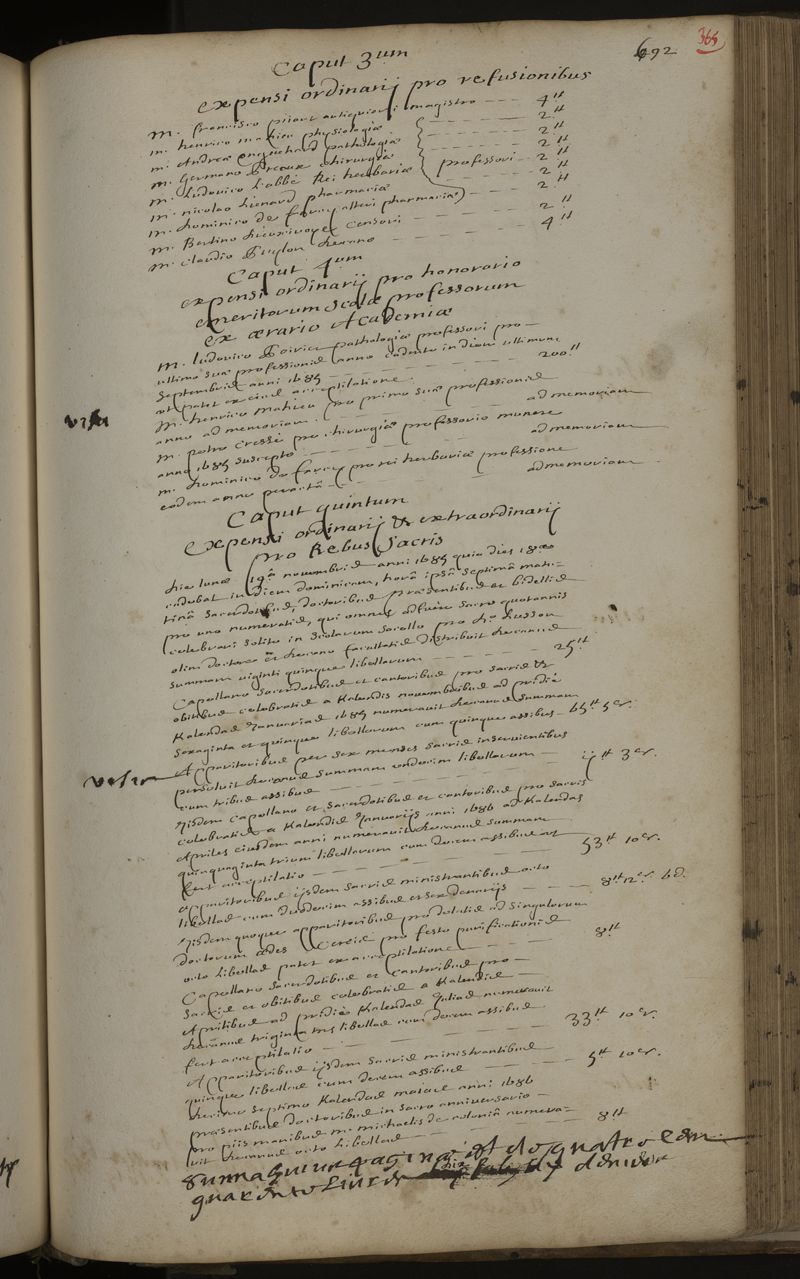 692 365
Caput 3um
expensi ordinarij pro refusionibus
m. francisco antiquiori magistro 4tt
m. henrico mahieu physiologiæ 2tt
m. Andreæ enguehard pathologiæ 2tt
m. Germano preaux chirurgiæ 2tt
m. Ludovico Labbé Rei herbariæ professori 2tt
m. nicolao Lienard pharmaciæ 2tt
m. dominico de farcy alteri pharmaciæ 2tt
m. Bertino dieuxivoye Censori 2tt
m. Claudio Puylon decano 4tt
Caput 4um
expensi ordinarij pro honorario
emeritorum scolæ professorum
ex ærario Academiæ
m. ludovico Poirier pathologiæ professori pro
ultimo suæ professionis anno cadente in diem ultimum
septembris anni 1685
ut patet ex eius acceptilatione 200tt
m. henrico Mahieu pro primo suæ professionis
anno ad memoriam ad memoriam
m. petro Cressé pro chirurgiæ professorio munere
anno 1685 suscepto ad memoriam
m. dominico de farcy pro rei herbariæ professione
eodem anno peractâ ad memoriam
visa
Caput quintum
Expensi ordinarij & extraordinarij
pro Rebus Sacris
die lunæ 19a novembris anni 1685 quia dies 18a
cadebat in diem dominicam, horâ ipsâ septimâ matu=
tinâ sacerdotibus, doctoribus præsentibus et bidellis
pro uno numeratis, qui omnes adfuere sacro quotannis
celebrari solito in scolarum sacello pro Mo husson
olim doctore et decano facultatis distribuit decanus
summam viginti quinque libellarum 25tt
Capellano sacerdotibus et cantoribus pro sacris &
obitibus celebratis a Kalendis novembribus ad pridiè
Kalendas Januarias 1685 numeravit decanus summam
sexaginta et quinque libellarum cum quinque assibus 65tt 5s.
Apparitoribus per sex menses sacris inservientibus
persoluit decanus summam undecim libellarum
cum tribus assibus ijtt 3s.
visa
Ijsdem capellano et sacerdotibus et cantoribus pro sacris
celebratis a Kalendis Januarijs anni 1686 ad Kalendas
Apriles eiusdem anni numeravit decanus summam
quinquaginta trium libellarum cum decem assibus ut
fert acceptilatio 53tt 10s.
apparitoribus ijsdem sacris ministrantibus octo
libellas cum duodecim assibus et sex denarijs 8tt 12s. 6d.
Ijsdem quoque apparitoribus pro delatis ad singulorum
doctorum ædes Cereis pro festo purificationis
octo libellas patet ex acceptilatione 8tt
Capellano sacerdotibus et Cantoribus pro
Sacris et obitibus celebratis a Kalendis
Aprilibus ad pridiè Kalendas Julias numeravit
decanus triginta tres libellas cum decem assibus
fert acceptilatio 33tt 10s.
Apparitoribus ijsdem sacris ministrantibus
quinque libellas cum decem assibus 5tt 10s.
decimo septimo Kalendas maias anni 1686
præsentibus doctoribus in sacro anniversario
pro piis manibus m. michaelis de numera=
vit decanus octo libellas 8tt
Summa huius paginæ est de quatre cen
quarante livres denier